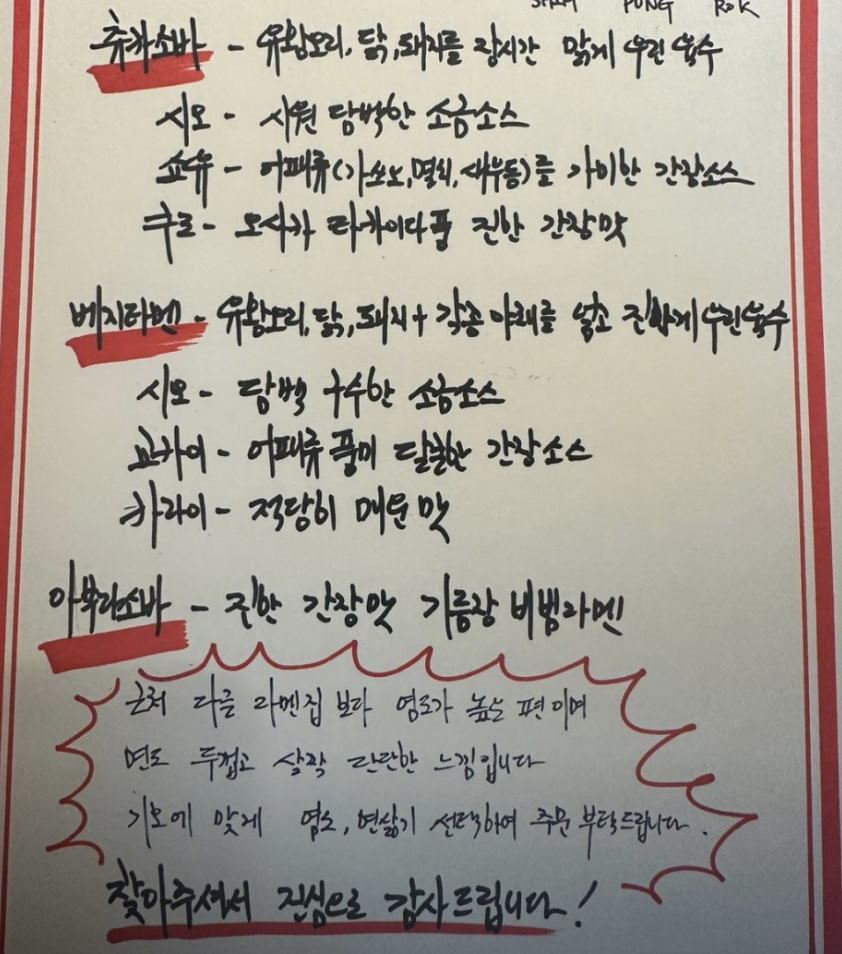 SHIM PUNG ROK
츄카소바 - 유황오리, 닭, 돼지를 장시간 맑게 우린 육수
시오 - 시원 담백한 소금소스
쇼유 - 어패류(가쓰오, 멸치, 새우등)를 가미한 간장소스
쿠로 - 오사카 타카이다풍 진한 간장맛
베지타멘 - 유황오리, 닭, 돼지 + 각종 야채를 넣고 진하게 우린육수
시오 - 담백 구수한 소금소스
교카이 - 어패류 풍미 달콤한 간장소스
카라이 - 적당히 매운맛
아부라소바 - 진한 간장맛 기름장 비빔라멘
근처 다른 라멘집 보다 염도가 높은 편이며
면도 두껍고 살짝 단단한 느낌입니다
기호에 맞게 염도, 면삶기 선택하여 주문 부탁드립니다.
찾아주셔서 진심으로 감사드립니다!